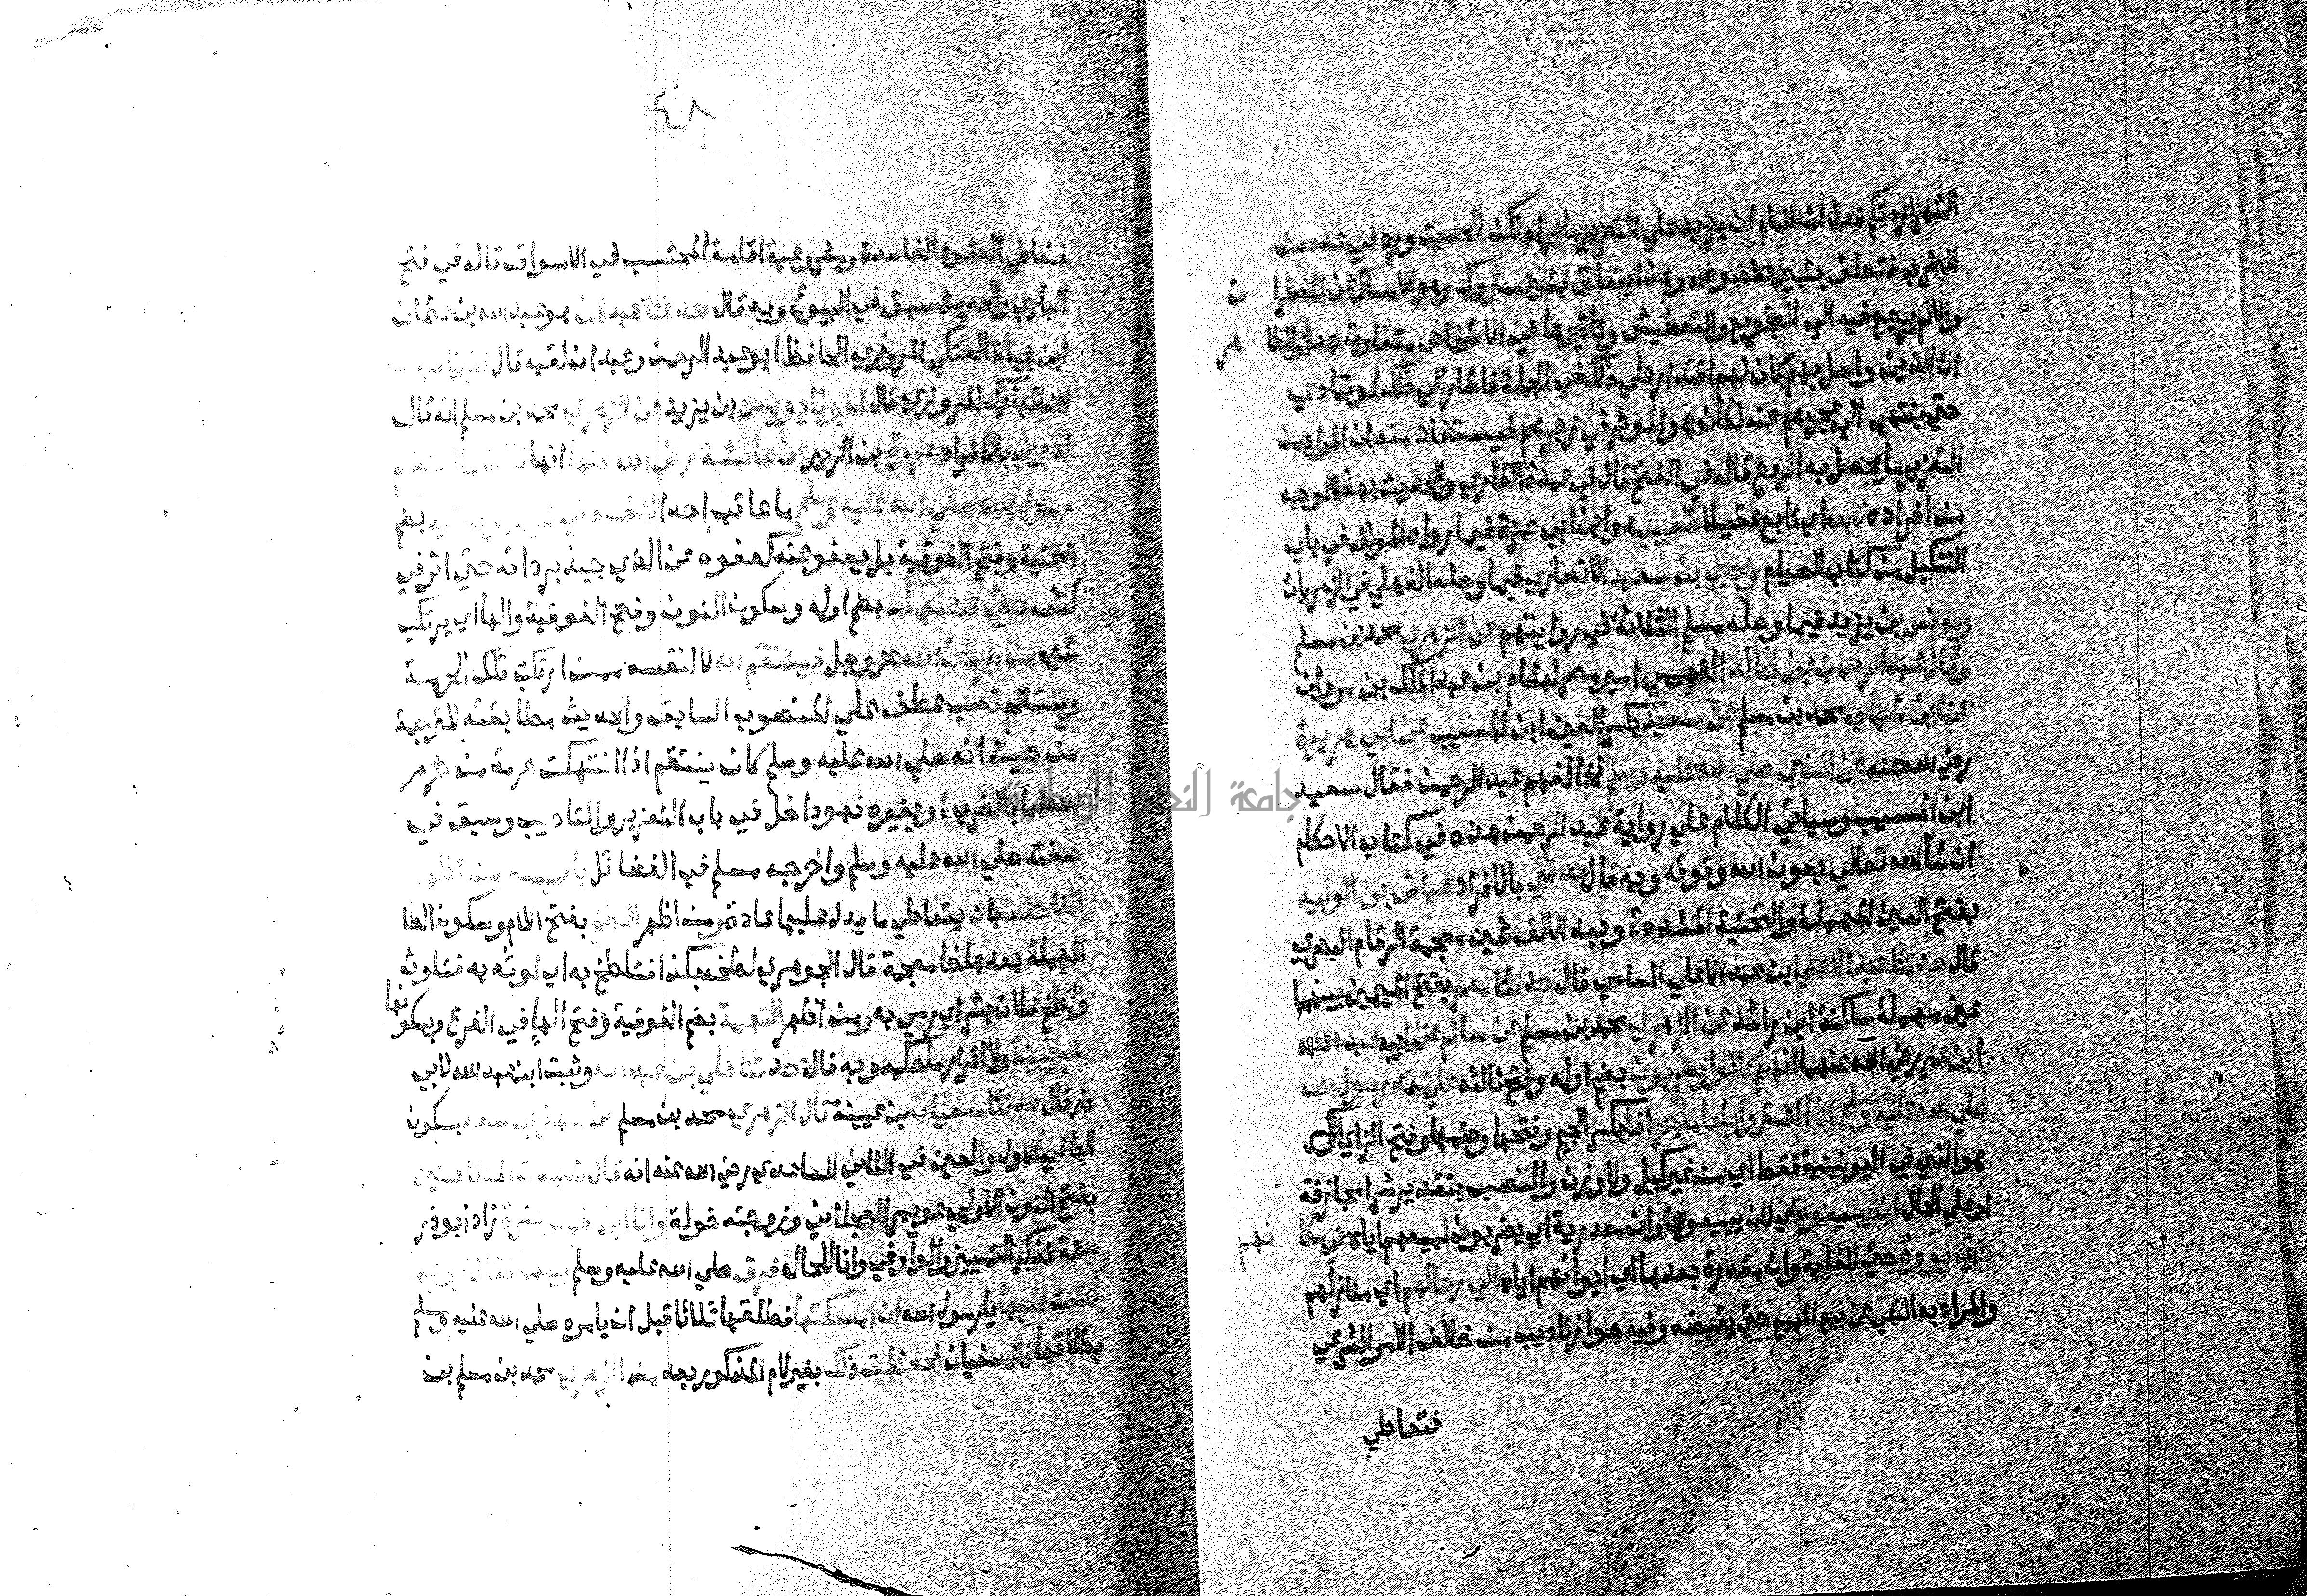 الشهر لزدتكم فدل ان للامام ان يزيد على التعزير ما يراه لكن الحديث ورد في عدد من
الضرب فتعلق بشي مخصوص وهذا يتعلق بشي متروك وهو الامساك عن المفطرات
والالم يرجع فيه الي التجويع والتعطيش وتاثيرهما في الاشخاص متفاوت جدا والظاهر
ان الذين واصل بهم كان لهم اقتدار علي ذلك في الجملة فاشار الي ذلك لو تمادي
حتي ينتهي الي عجزهم عنه لكان هو الموثر في زجرهم فيستفاد منه ان المراد من
التعزير ما يحصل به الردع قاله في الفتح قال في عمدة القاري والحديث بهذا الوجه
من افراده تابعه اي تابع عقيلا شعيب هو ابن ابي حمزة فيما رواه المولف في باب
التنكيل من كتاب الصيام ويحيي بن سعيد الانصاري فيما وصله الذهلي في الزهريات
ويونس بن يزيد فيما وصله مسلم الثلاثة في روايتهم عن الزهري محمد بن مسلم
وقال عبد الرحمن بن خالد الفهمي امير مصر لهشام بن عبد الملك بن مروان
عن ابن شهاب محمد بن مسلم عن سعيد بكسر العين ابن المسيب عن ابي هريرة
رضي الله عنه عن النبي صلي الله عليه وسلم فخالفهم عبد الرحمن فقال سعيد
ابن المسيب وسياتي الكلام علي رواية عبد الرحمن هذه في كتاب الاحكام
ان شا الله تعالي بعون الله وقوته وبه قال حدثني بالافراد عياش بن الوليد
بفتح العين المهملة والتحتية المشددة وبعد الالف شين معجمة الرقام البصري
قال حدثنا عبد الاعلي بن عبد الاعلي السامي قال حدثنا معمر بفتح الميمين بينهما
عين مهملة ساكنة ابن راشد عن الزهري محمد بن مسلم عن سالم عن ابيه عبد الله
ابن عمر رضي الله عنهما انهم كانوا يضربون بضم اوله وفتح ثالثه علي عهد رسول الله
صلي الله عليه وسلم اذا اشتروا طعاما جزافا بكسر الجيم وفتحها وضمها وفتح الزاي الكسر
هو الذي في اليونينية فقط اي من غير كيل ولا وزن والنصب بتقدير شرا مجازفة
او علي الحال ان يبيعوه اي لان يبيعوه وان مصدرية اي يضربون لبيعهم اياه في مكانهم
حتي يووه حتي للغاية وان مقدرة بعدها اي ايوائهم اياه الي رحالهم اي منازلهم
والمراد به النهي عن بيع المبيع حتي يقبضه وفيه جواز تاديب من خالف الامر الشرعي
فتعاطي
٤٨
فتعاطي العقود الفاسدة ومشروعية اقامة المحتسب في الاسواق قاله في فتح
الباري والحديث سبق في البيوع وبه قال حدثنا عبدان هو عبد الله بن عثمان
ابن جبلة العتكي المروزي الحافظ ابو عبد الرحمن وعبدان لقبه قال اخبرنا عبد الله
ابن المبارك المروزي قال اخبرنا يونس بن يزيد عن الزهري محمد بن مسلم انه قال
اخبرني بالافراد عروة بن الزبير عن عائشة رضي الله عنها انها قالت ما انتقم
رسول الله صلي الله عليه وسلم ما عاقب احدا لنفسه في شي يوتي اليه بضم
التحتية وفتح الفوقية بل يعفو عنه كعفوه عن الذي جبذ بردائه حتي اثر في
كتفه حتي تنتهك بضم اوله وسكون النون وفتح الفوقية والها اي يرتكب
شي من حرمات الله عز وجل فينتقم لله لا لنفسه ممن ارتكب تلك الحرمة
وينتقم نصب عطف علي المنصوب السابق والحديث مطابقته للترجمة
من حيث انه صلي الله عليه وسلم كان ينتقم اذا انتهكت حرمة من حرم
الله اما بالضرب او بغيره فهو داخل في باب التعزير والتاديب وسبق في
صفته صلي الله عليه وسلم واخرجه مسلم في الفضائل باب من اظهر
الفاحشة بان يتعاطي ما يدل عليها عادة ومن اظهر اللطخ بفتح اللام وسكون الطا
المهملة بعدها خا معجمة قال الجوهري لطخه بكذا فتلطخ به اي لوثه به فتلوث
ولطخ فلان بشر اي رمي به ومن اظهر التهمة بضم الفوقية وفتح الها في الفرع وسكونها
بغير بينة ولا اقرار ما حكمه وبه قال حدثنا علي بن عبد الله وثبت ابن عبد الله لابي
ذر قال حدثنا سفيان بن عيينة قال الزهري محمد بن مسلم عن سهل بن سعد بسكون
الها في الاول والعين في الثاني الساعدي رضي الله عنه انه قال شهدت المتلاعنين
بفتح النون الاولي عويمر العجلاني وزوجته خولة وانا ابن خمس عشرة زاد ابو ذر
سنة فذكر التمييز والواو في وانا للحال فرق صلي الله عليه وسلم بينهما فقال زوجها
كذبت عليها يا رسول الله ان امسكتها فطلقها ثلاثا قبل ان يامره صلي الله عليه وسلم
بطلاقها قال سفيان فحفظت ذلك بغير لام المذكور بعد من الزهري محمد بن مسلم بن
جامعة النجاح الوطنية